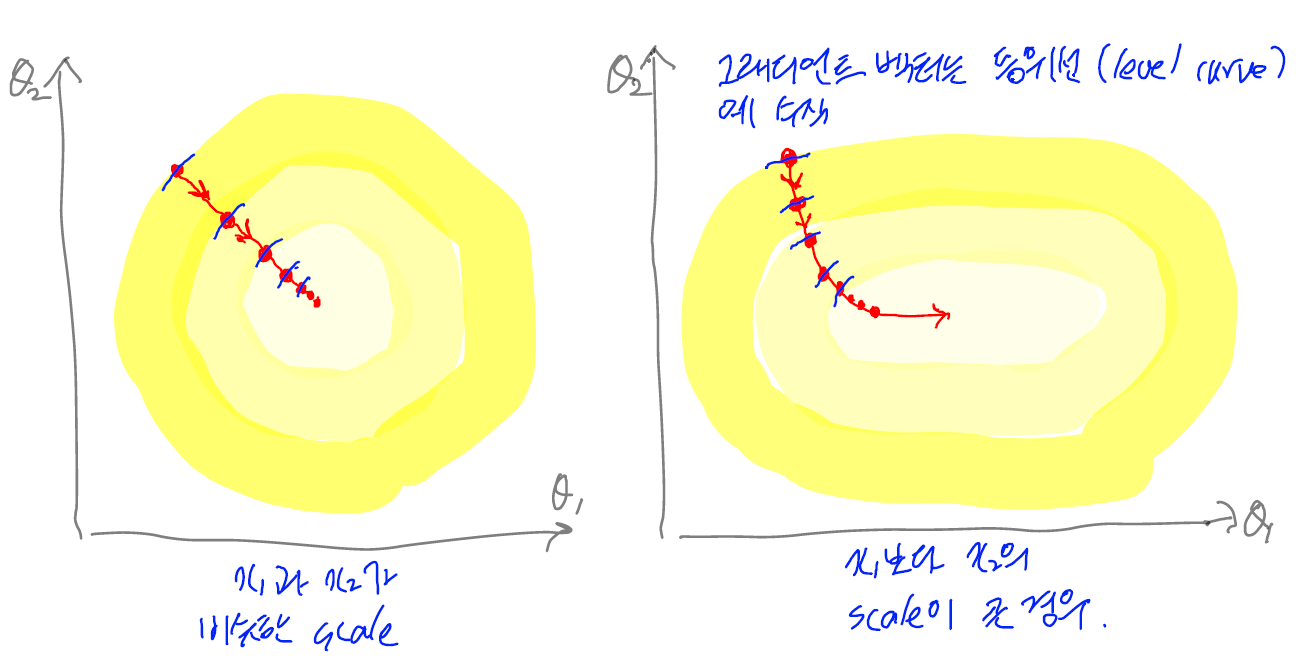 θ₂
θ₁
x₁과 x₂가
비슷한 scale
θ₂
그래디언트 벡터는 등위선 (level curve)
에 수직
θ₁
x₁보다 x₂의
scale이 큰 경우.